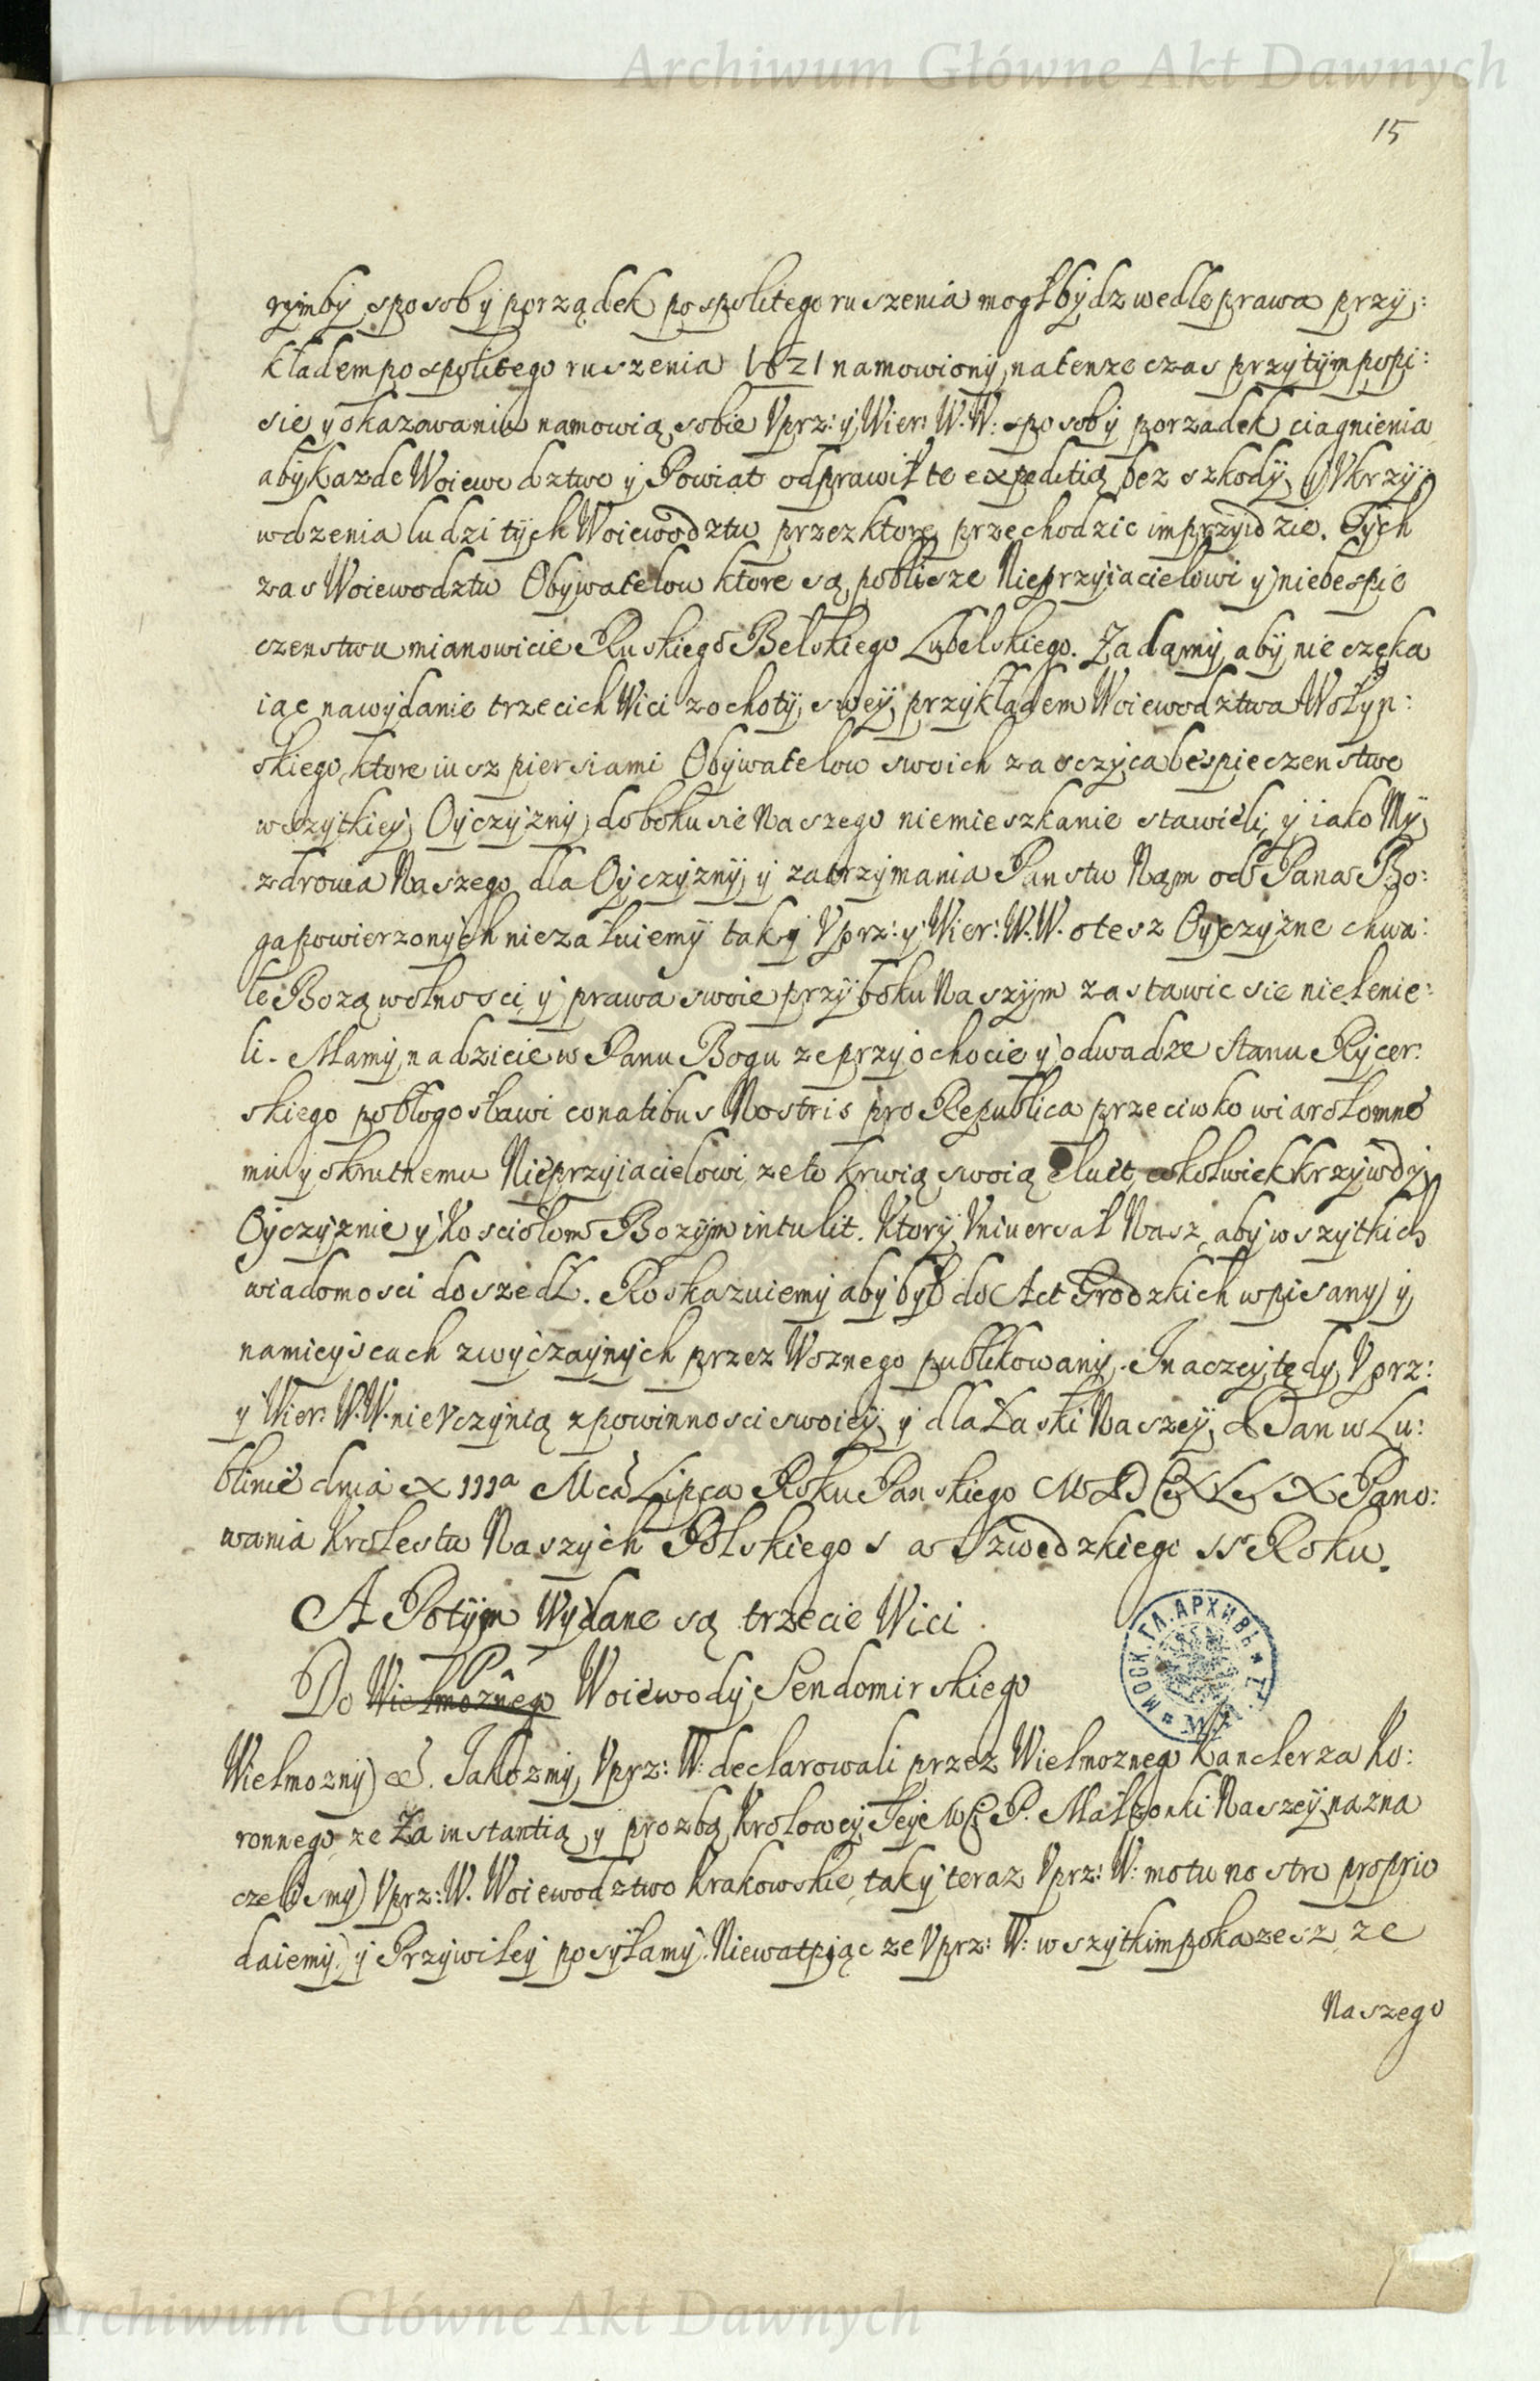 Archiwum Główne Akt Dawnych
15
rymby sposoby porządek pospolitego ruszenia mogł bydz wedle prawa przy:
kładem pospolitego ruszenia 1621 namowiony, natenze czas przy tym popi:
sie y okazowaniu namowią sobie Vprz: y Wier: W. W: sposob y porzadek ciagnienia
aby kazde Woiewodztwo y Powiat odprawił te expeditią bez szkody, y Vkrzy
wdzenia ludzi tych Woiewodztw przez ktore przechodzic im przyidzie. Tych
zas Woiewodztw Obywatelow ktore są poblisze Nieprzyiacielowi y niebespie
czenstwu mianowicie Ruskiego Belskiego Lubelskiego. Żadamy aby nie czeka
iąc na wydanie trzecich Wici z ochoty swey, przykładem Woiewodztwa Wołyn:
skiego, ktore iusz piersiami Obywatelow swoich zasczyca bespieczenstwo
wszytkiey Oyczyzny, do boku sie Naszego niemieszkanie stawieli, y iako My
zdrowia Naszego dla Oyczyzny y zatrzymania Panstw Nam od Pana Bo:
ga powierzonych niezałuiemy tak y Vprz: y Wier: W. W. o tesz Oyczyzne chwa:
łe Bozą wolnosci y prawa swoie przy boku Naszym zastawic sie nielenie:
li. Mamy nadzieie w Panu Bogu ze przy ochocie y odwadze stanu Rycer:
skiego pobłogosławi conatibus Nostris pro Republica przeciwko wiarołomne
mu y okrutnemu Nieprzyiacielowi, ze to krwią swoią eluet, cokolwiek krzywdy
Oyczyznie y Kosciołom Bozym intulit. Ktory Vniuersał Nasz, aby wszytkich
wiadomosci doszedł. Roskazuiemy aby był do Act Grodzkich wpisany y
na mieyscach zwyczaynych przez Woznego publikowany. Inaczey tedy Vprz:
y Wier: W. W. nie Vczynią z powinnosci swoiey, y dla Łaski Naszey. Dan w Lu:
blinie dnia XIIIa Mca Lipca Roku Panskiego MDCXLIX Pano:
wania Krolestw Naszych Polskiego 1 a Szwedzkiego 1 Roku.
A Potym Wydane są trzecie Wici.
Do Wielmoznego P. Woiewody Sendomirskiego
Wielmozny &c. Jakozmy Vprz: W: declarowali przez Wielmoznego Kanclerza Ko:
ronnego, ze Za instantią y prozbą Krolowey Jeye M. P. Małzonki Naszey, nazna
czelismy Vprz: W. Woiewodztwo Krakowskie, tak y teraz Vprz: W: motu nostro proprio
daiemy, y Przywiley posyłamy. Niewatpiąc ze Vprz: W: wszytkim pokazesz ze
Naszego
МОСК. ГЛ. АРХИВЪ
Archiwum Główne Akt Dawnych